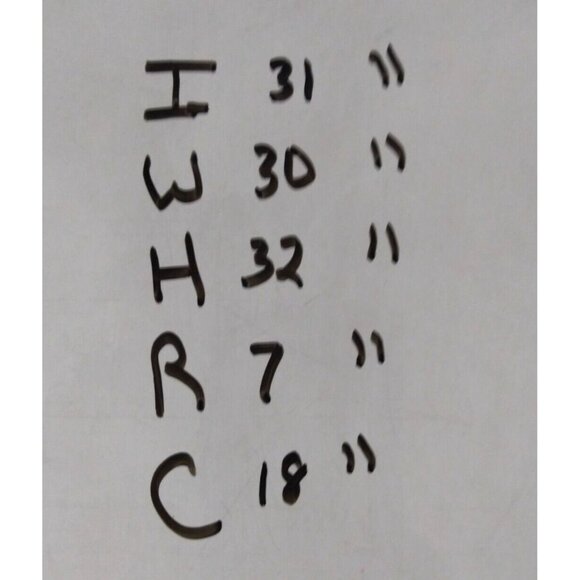 I 31 "
W 30 "
H 32 "
R 7 "
C 18 "